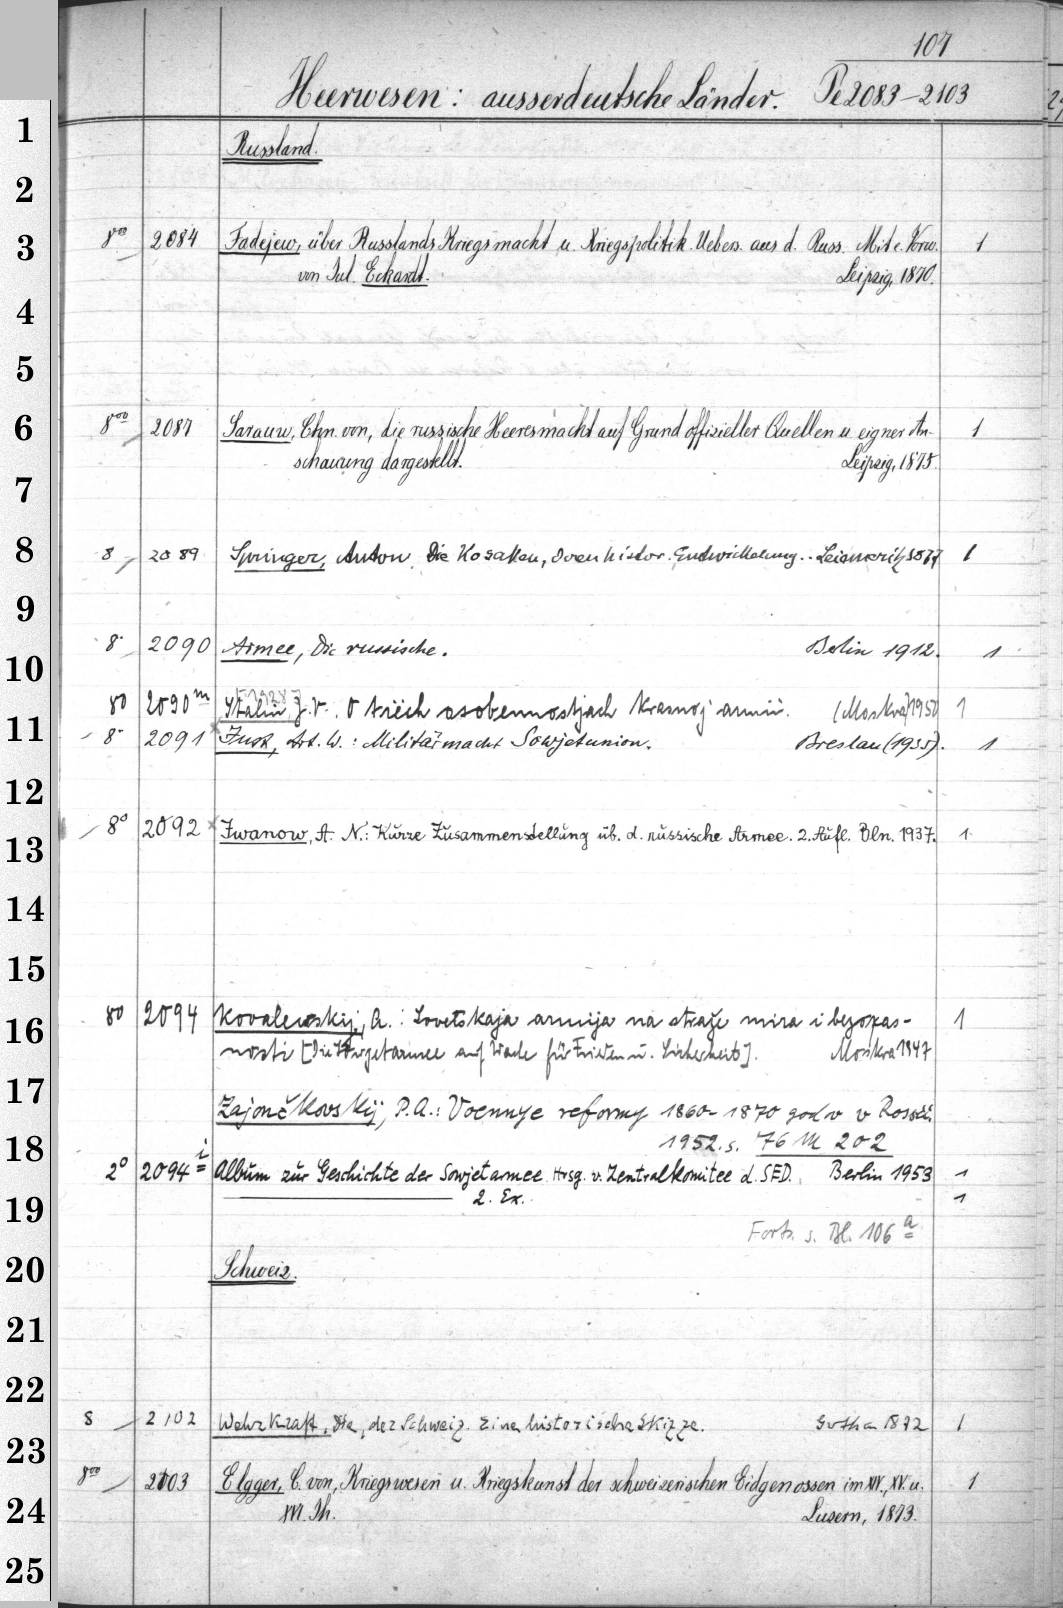 107
Heerwesen: ausserdeutsche Länder. Pe 2083-2103
1
Russland.
2
3
8°° 2084 Fadejew, über Russlands Kriegsmacht u. Kriegspolitik. Uebers. aus d. Russ. Mit e. Vorw. 1
von Jul. Eckardt. Leipzig, 1870.
4
5
6
8°° 2087 Sarauw, Chn. von, die russische Heeresmacht auf Grund offizieller Quellen u. eigner An- 1
schauung dargestellt. Leipzig, 1875.
7
8
8 2089 Springer, Anton. Die Kosaken, deren histor. Entwickelung.. Leitmeritz 1877 1
9
10
8° 2090 Armee, Die russische. Berlin 1912. 1
80 2090 m Stalin, J. V. O trëch osobennostjach Krasnoj armii. (Moskva) 1950 1
11
8° 2091 Just, Art. W.: Militärmacht Sowjetunion. Breslau (1935). 1
12
8° 2092 Iwanow, A. N.: Kurze Zusammenstellung üb. d. russische Armee. 2. Aufl. Bln. 1937. 1
13
14
15
16
80 2094 Kovalevskij, A.: Sovetskaja armija na straže mira i bezopas- 1
nosti [Die Sowjetarmee auf Wache für Frieden u. Sicherheit]. Moskva 1947
17
Zajončkovskij, P.A.: Voennye reformy 1860-1870 godov v Rossii.
1952. s. 76 M 202
18
2° 2094 i Album zur Geschichte der Sowjetarmee. Hrsg. v. Zentralkomitee d. SED. Berlin 1953 1
19
2. Ex. 1
Forts. s. Bl. 106 a
20
Schweiz.
21
22
8 2102 Wehrkraft, Die, der Schweiz. Eine historische Skizze. Gotha 1872 1
23
8°° 2103 Elgger, C. von, Kriegswesen u. Kriegskunst der schweizerischen Eidgenossen im XIV., XV. u. 1
24
XVI. Jh. Luzern, 1873.
25